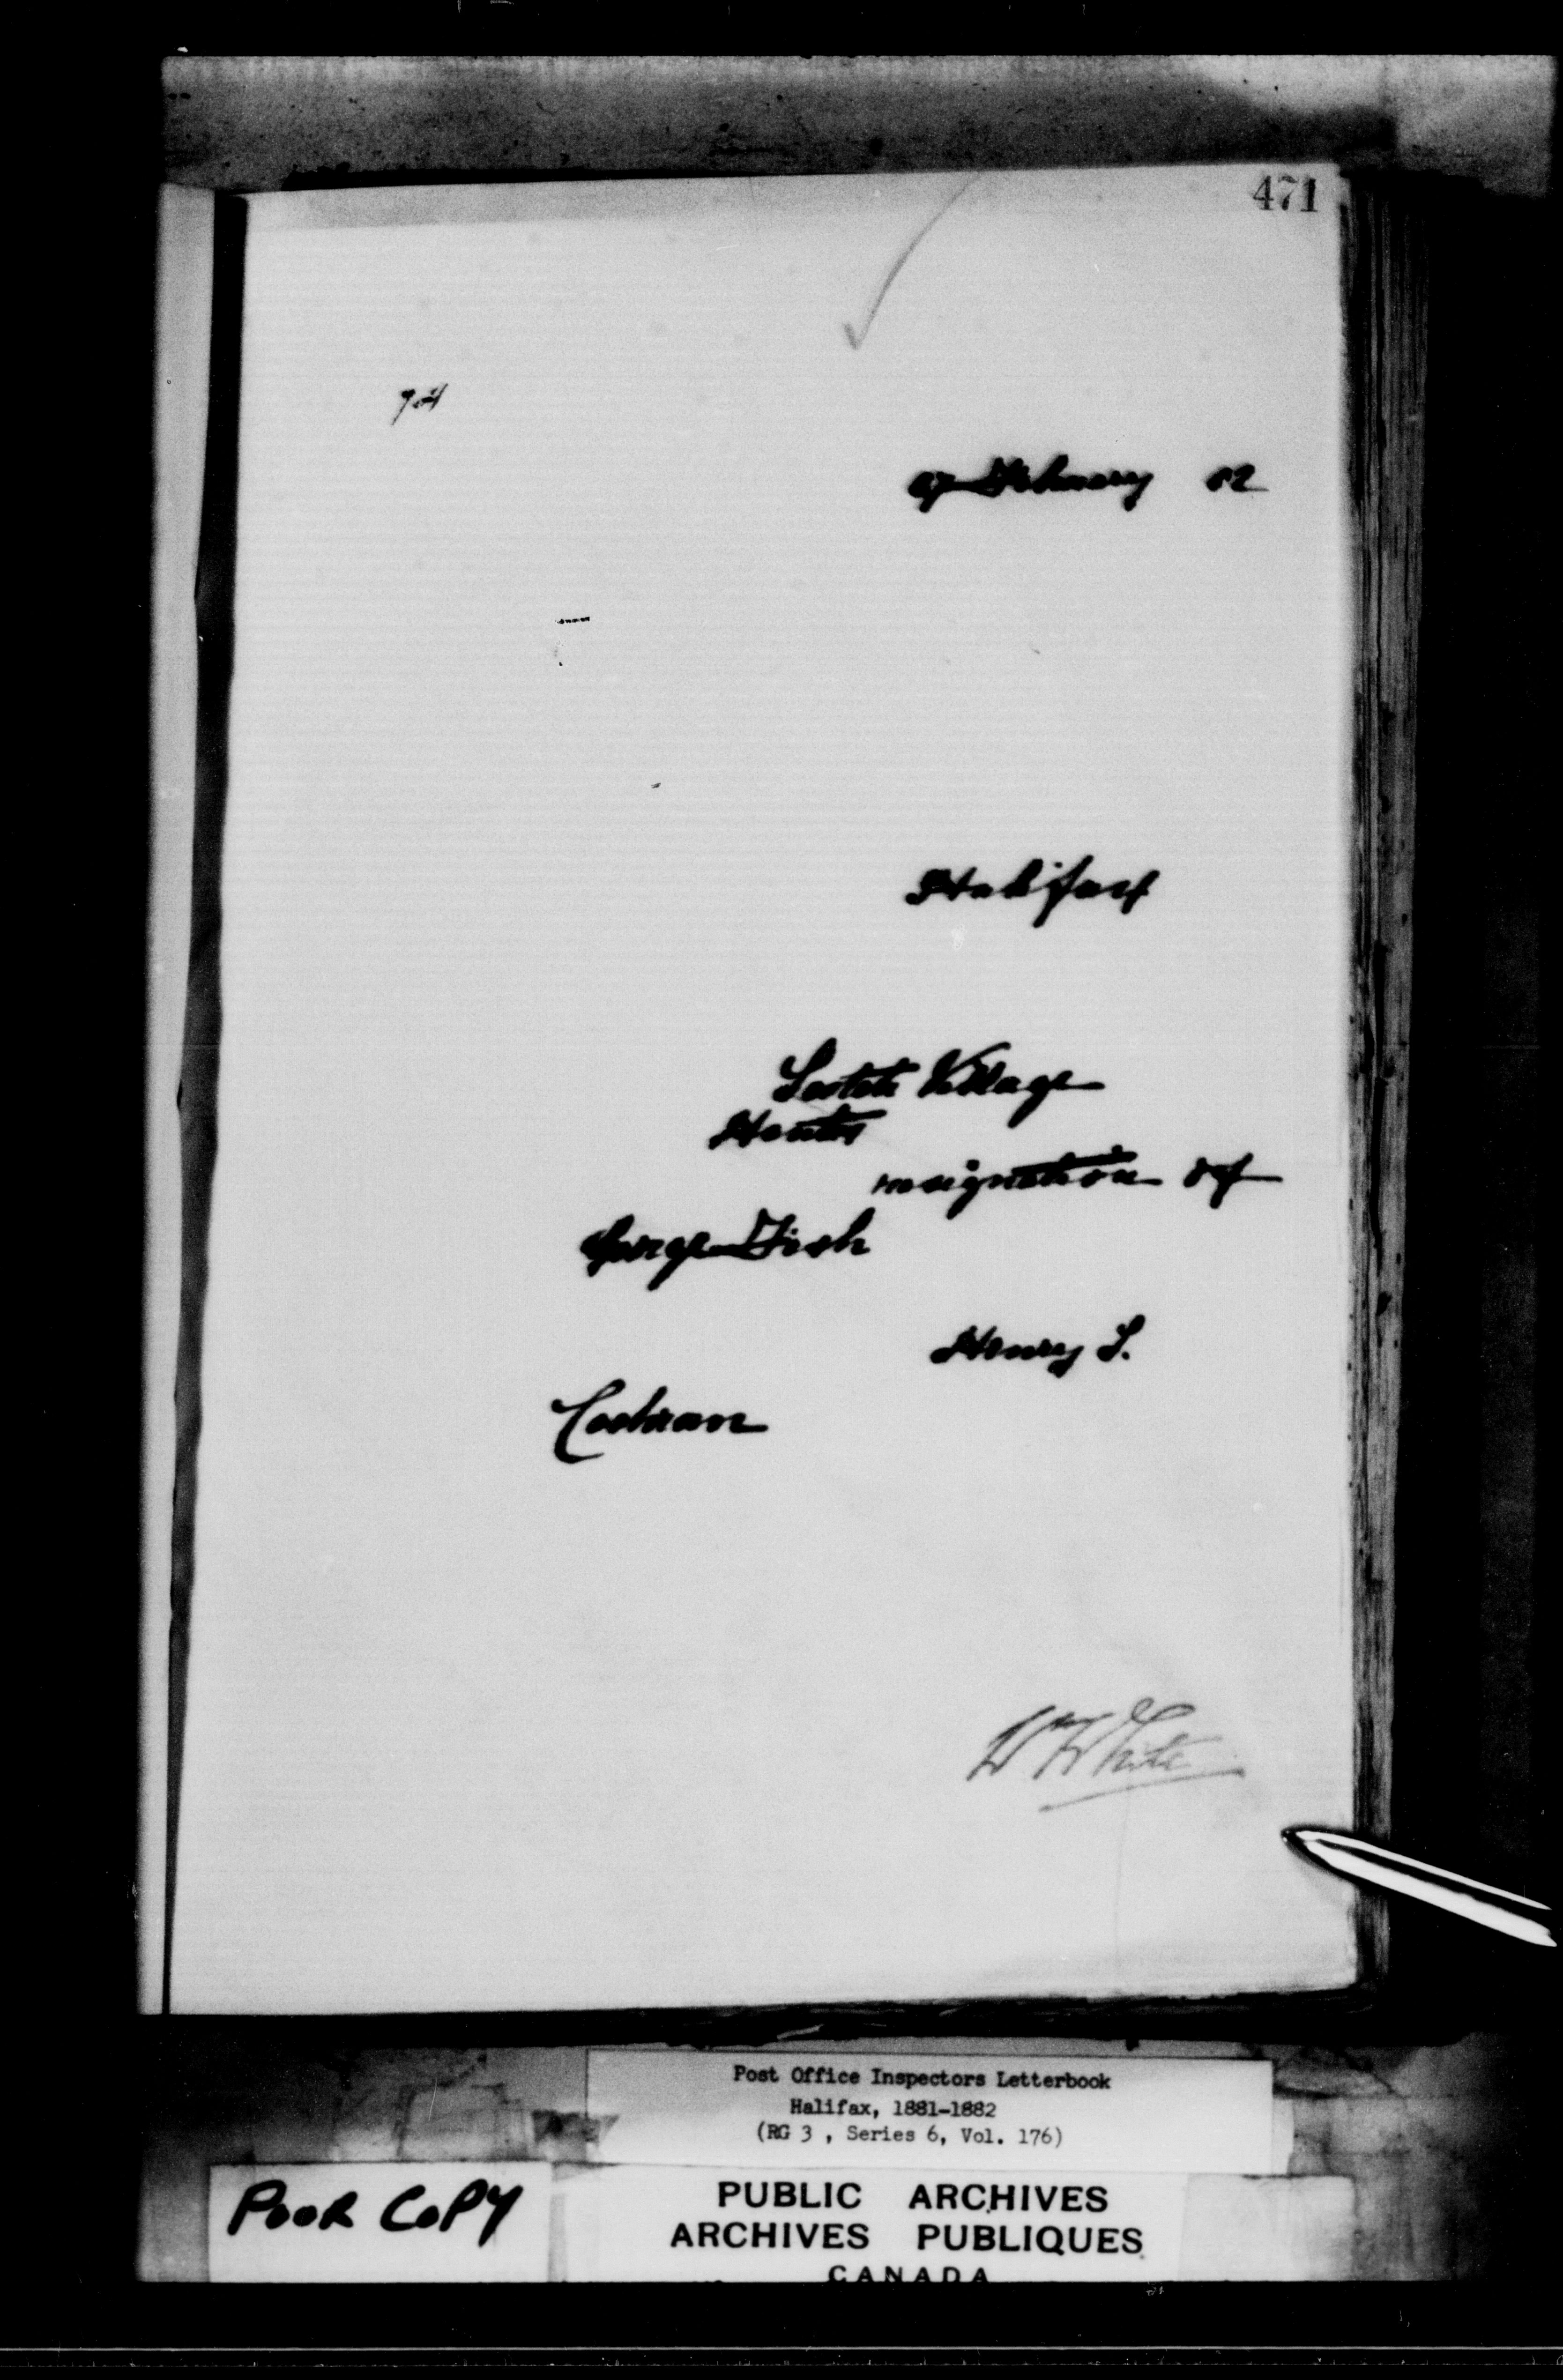 471
27 February 82
Halifax
Scotch Village
Hants
resignation of
George Fish
Henry S.
Cochran
W White
Post Office Inspectors Letterbook
Halifax, 1881-1882
(RG 3 , Series 6, Vol. 176)
POOR COPY
PUBLIC ARCHIVES
ARCHIVES PUBLIQUES
CANADA